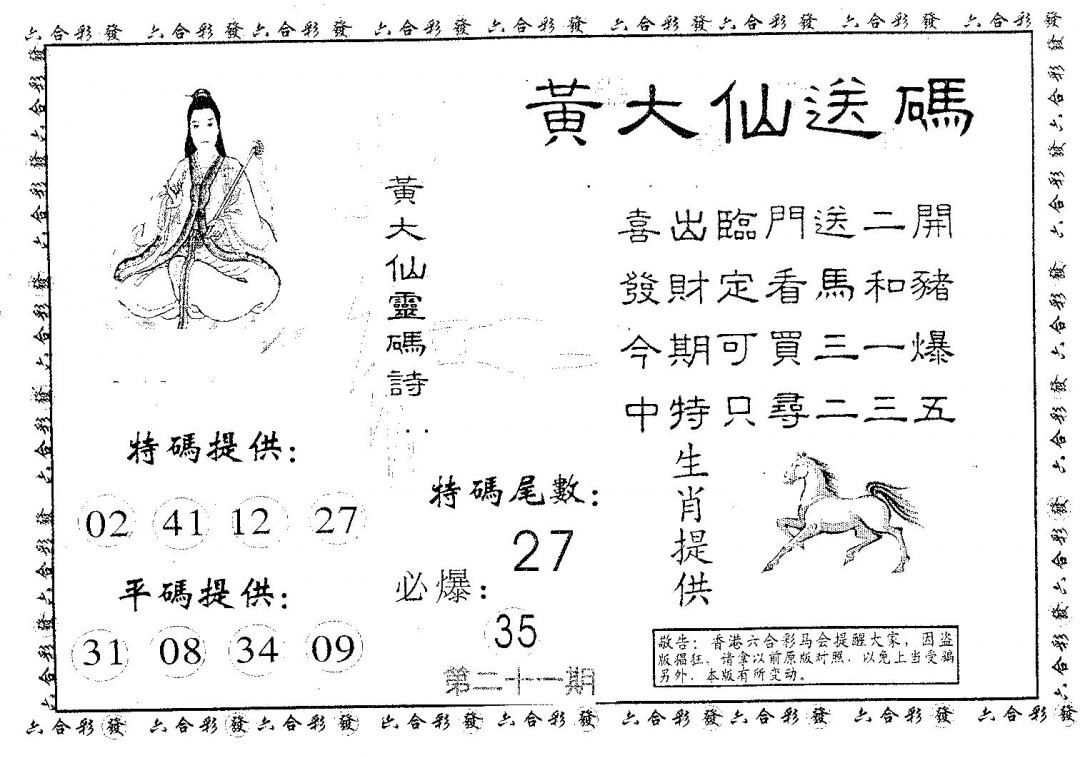 六合彩發 六合彩發六合彩發 六合彩發 六合彩發 六合彩發六合彩發 六合彩發 六合彩發
黃大仙送碼
黃大仙靈碼詩
喜出臨門送二開
發財定看馬和豬
今期可買三一爆
中特只尋二三五
特碼提供:
02 41 12 27
平碼提供:
31 08 34 09
特碼尾數:
27
必爆:
35
第二十一期
生肖提供
敬告:香港六合彩马会提醒大家,因盗
版猖狂,请拿以前原版对照,以免上当受骗
另外,本版有所变动。
六合彩發 六合彩發六合彩發 六合彩發 六合彩發 六合彩發六合彩發 六合彩發 六合彩發